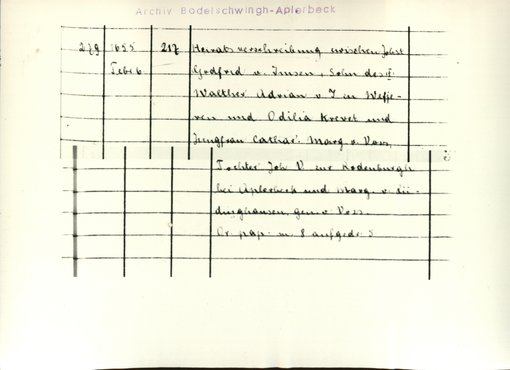 Archiv Bodelschwingh-Aplerbeck
279 1655 217 Heiratsverschreibung zwischen Jobst
Febr 6 Godfrid v. Sohn des
Walther Adrian v. J in
ren und Odilia Krevet und
Jungfrau Cathar. Marg. v. Voss,
Tochter Joh V zur Rodenburgh
bei Aplerbeck und Marg. v.
dinghausen, gen. v. Voss.
Or. pap. m. 8 aufgedr. S